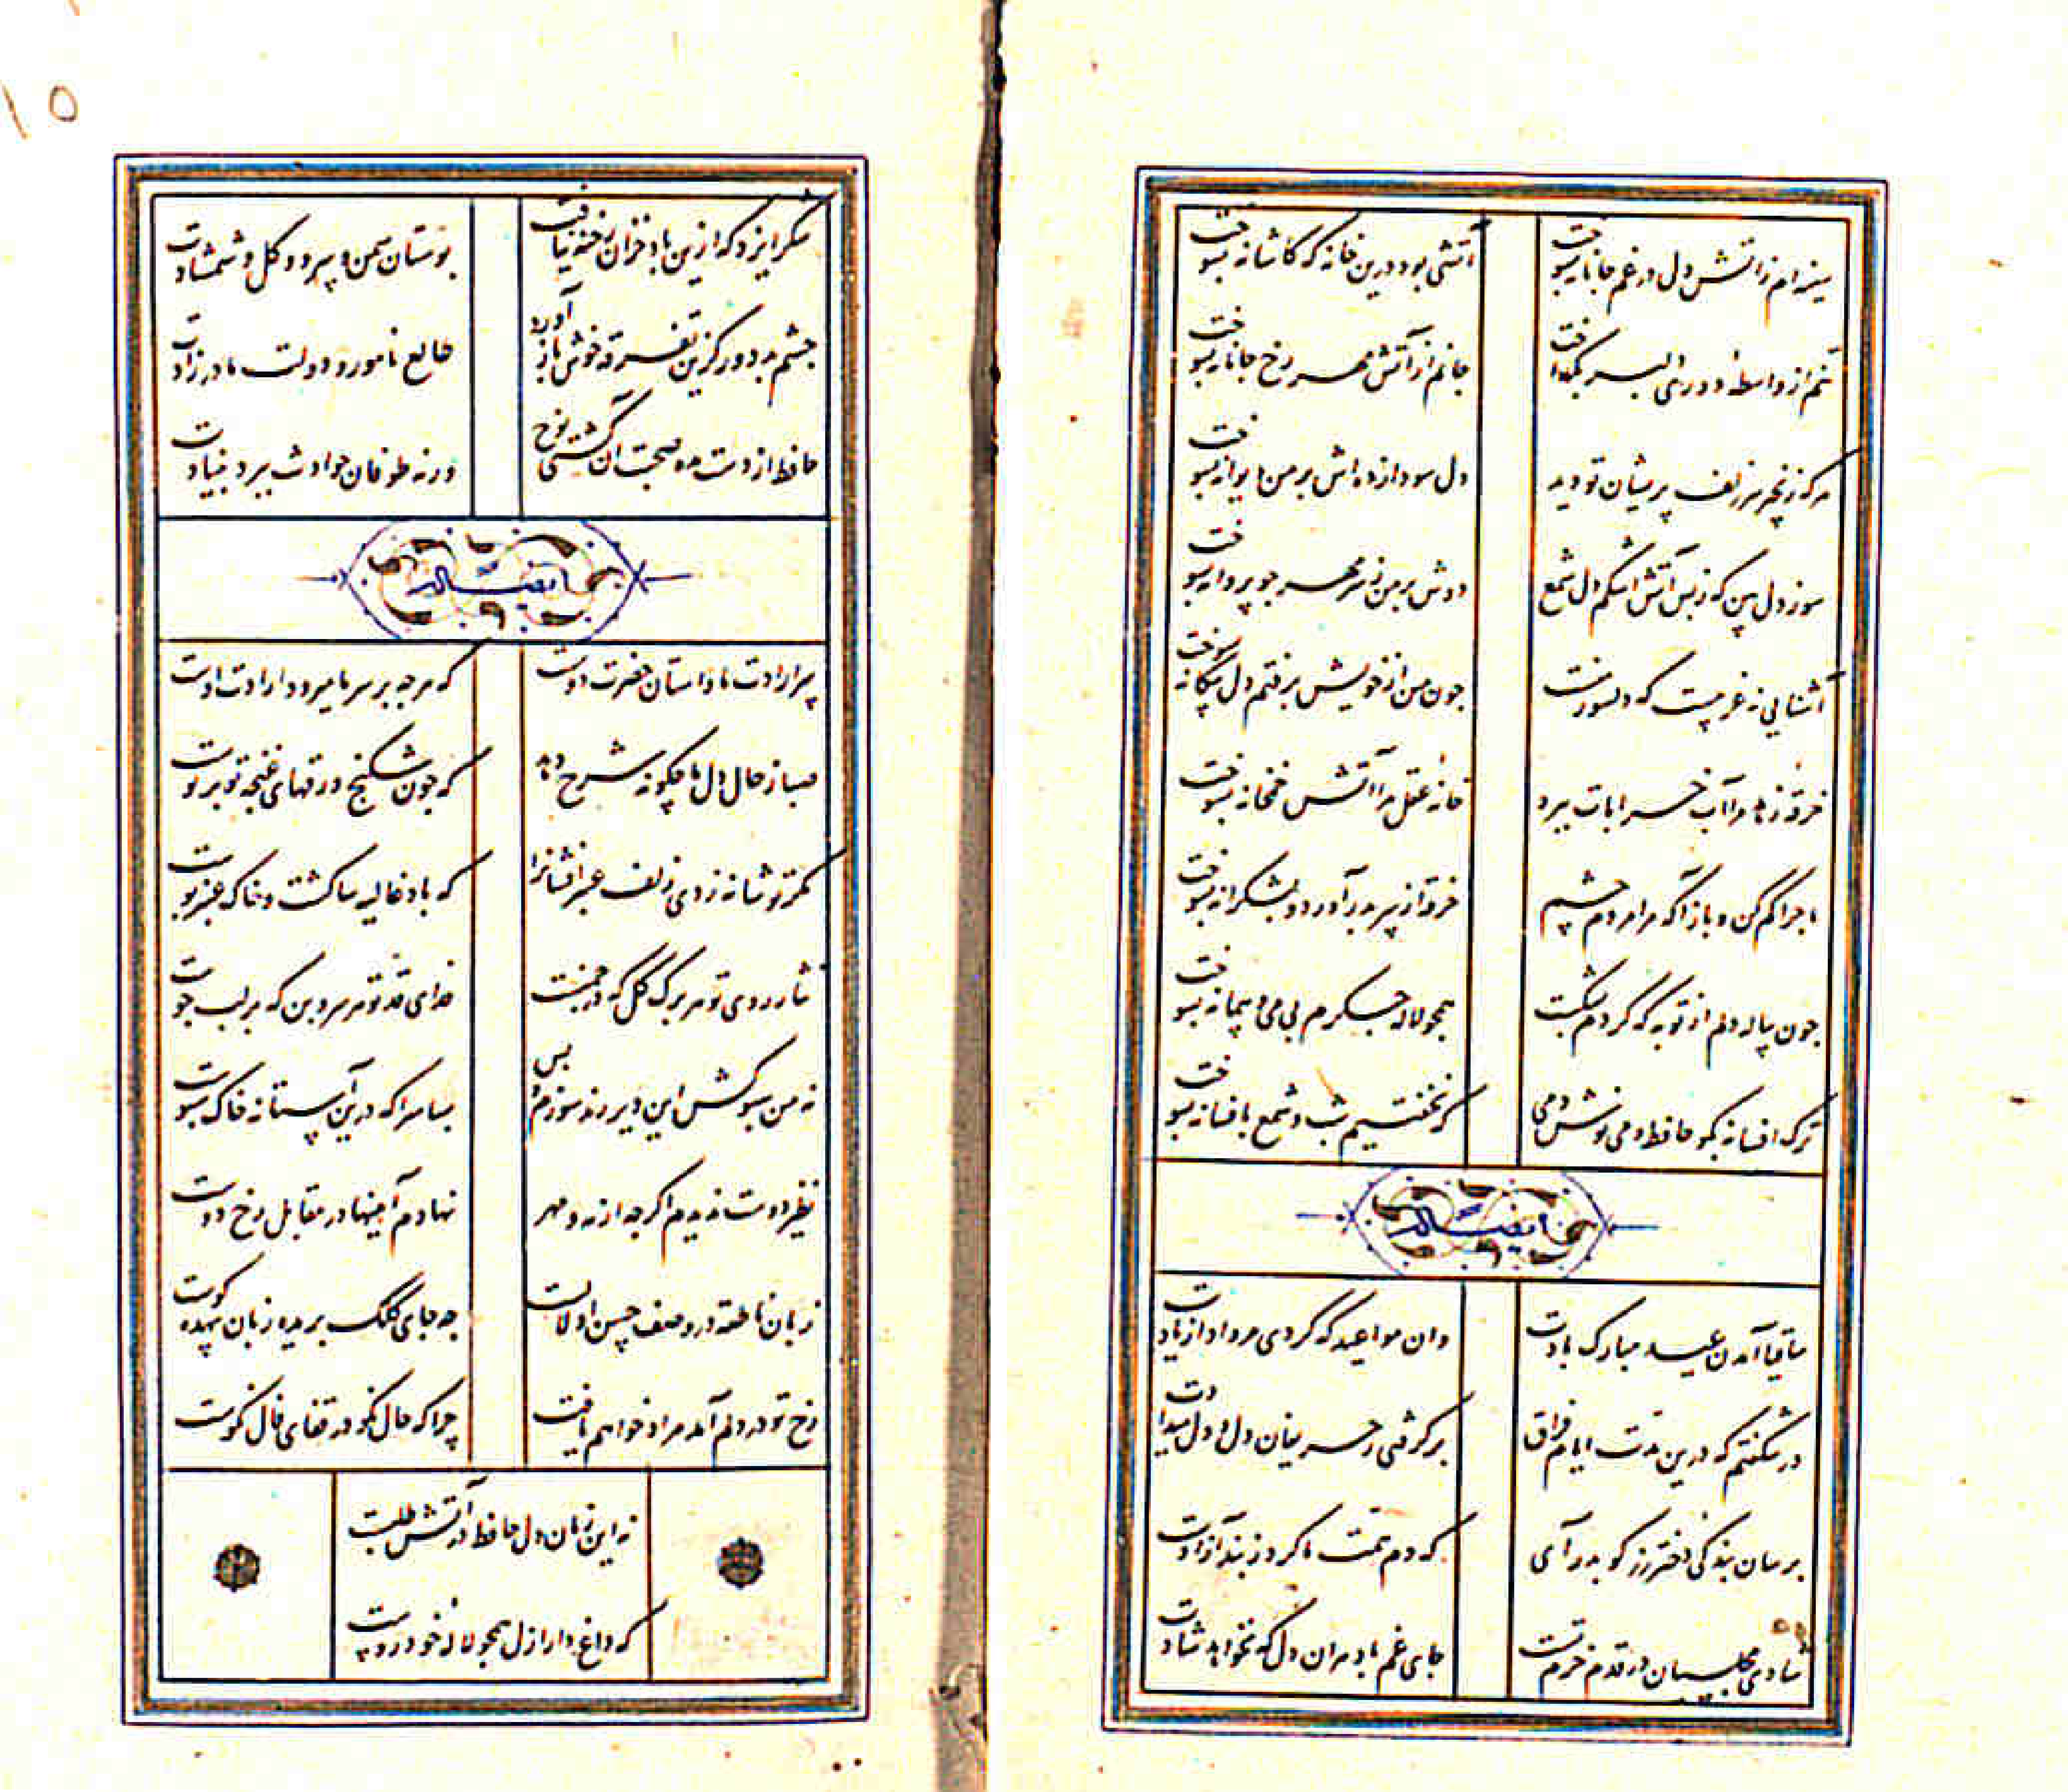 سینه ام زاتش دل در غم جانانه بسوخت
آتشی بود درین خانه که کاشانه بسوخت
تنم از واسطهٔ دوری دلبر بگداخت
جانم از آتش مهر رخ جانانه بسوخت
هر که زنجیر سر زلف پریشان تو دید
دل سودازده اش بر من دیوانه بسوخت
سوز دل بین که ز بس آتش اشکم دل شمع
دوش بر من ز سر مهر چو پروانه بسوخت
آشنایی نه غریبست که دلسوز منست
چون من از خویش برفتم دل بیگانه بسوخت
خرقه زهد مرا آب خرابات ببرد
خانهٔ عقل مرا آتش خمخانه بسوخت
ماجرا کم کن و باز آ که مرا مردم چشم
خرقه از سر بدر آورد و بشکرانه بسوخت
چون پیاله دلم از توبه که کردم بشکست
همچو لاله جگرم بی می و پیمانه بسوخت
ترک افسانه بگو حافظ و می نوش دمی
که نخفتیم شب و شمع بافسانه بسوخت
ایضا له
ساقیا آمدن عید مبارک بادت
وان مواعید که کردی مرواد از یادت
در شکفتم که درین مدت ایام فراق
برگرفتی ز حریفان دل و دل میدادت
برسان بندگی دختر رز گو بدر آی
که دم همت ما کرد ز بند آزادت
شادی مجلسیان در قدم خرم تست
جای غم باد مران دل که نخواهد شادت
۱۵
شکر ایزد که ازین باد خزان رخنه نیافت
بوستان سمن و سرو و گل و شمشادت
چشم بد دور کزین تفرقه خوش باز آورد
طالع نامور و دولت مادرزادت
حافظ از دست مده صحبت آن کشتی نوح
ورنه طوفان حوادث ببرد بنیادت
ایضا له
سر ارادت ما و آستان حضرت دوست
که هر چه بر سر ما میرود ارادت اوست
صبا ز حال دل ما چگونه شرح دهد
که چون شکنج ورقهای غنچه تو بر توست
مگر تو شانه زدی زلف عنبرافشانرا
که باد غالیه سا گشت و خاک عنبر بوست
نثار روی تو هر برگ گل که در چمنست
فدای قد تو هر سرو بن که بر لب جوست
نه من سبوکش این دیر رندسوزم و بس
بسا سرا که درین آستانه خاک سبوست
نظیر دوست ندیدم اگر چه از مه و مهر
نهادم آینها در مقابل رخ دوست
زبان ناطقه در وصف حسن او لالست
چه جای کلک بریده زبان بیهده گوست
رخ تو در دلم آمد مراد خواهم یافت
چرا که حال نکو در قفای فال نکوست
نه این زمان دل حافظ در آتش طلبست
که داغدار ازل همچو لاله خودروست